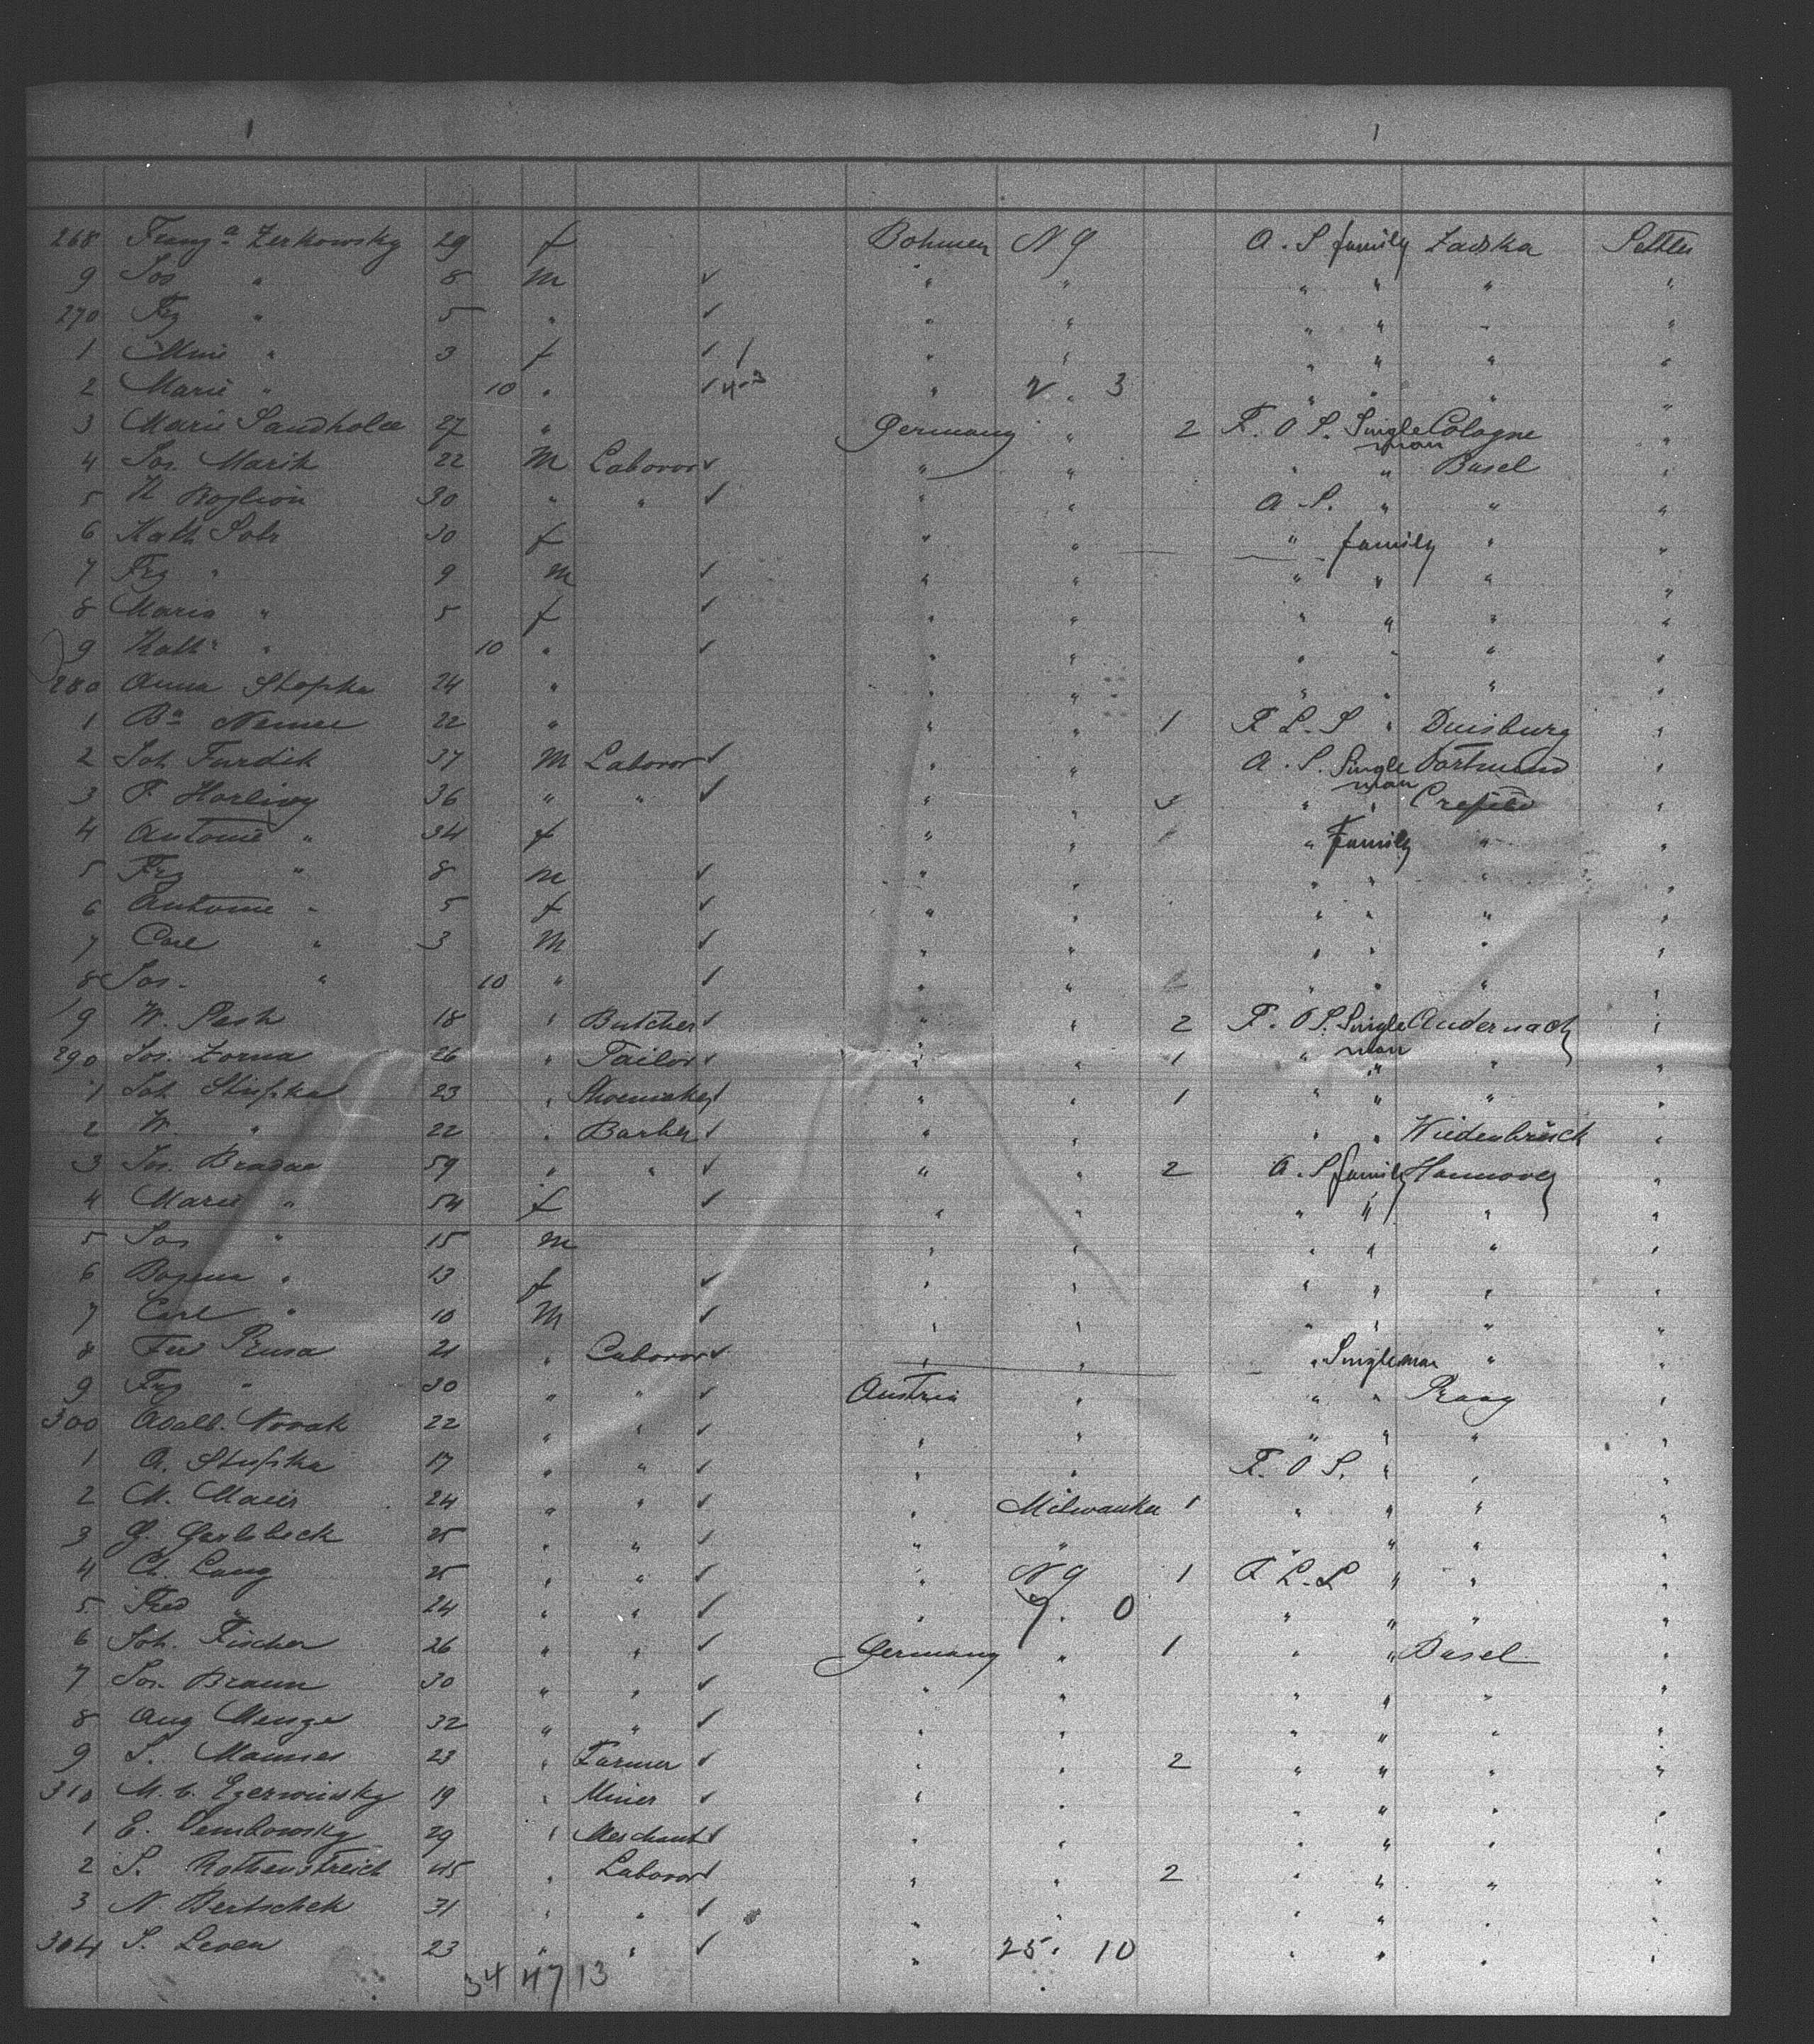 268 Franz a Zerkowsky 29 f Bohmen N Y A. S family Zadska Settler
9 Jos " 8 M ✓ " " " " " "
270 Frz " 5 " ✓ " " " " " "
1 " 3 f ✓ / " " " " " "
2 Marie " 10 " ✓ 4-3 " 2 . 3 " " " "
3 Marie Sandholee 27 " Germany " 2 F. O S. Single man Cologne "
4 Jos. Marik 22 M Laborer ✓ " " " " Basel "
5 30 " " ✓ " " A. S. " " "
6 Kath 30 f " " " family " "
7 Frz " 9 M ✓ " " " " " "
8 Maria " 5 f ✓ " " " " " "
9 Kath " 10 " ✓ " " " " " "
280 Anna Stopka 24 " " " " " " "
1 Ba Nemec 22 " " " 1 F L. S " Duisburg "
2 Joh Furdik 37 M Laborer ✓ " " A. S. Single man Dortmund "
3 P. 36 " " ✓ " " " " Crefeld "
4 Antonie " 34 f " " " Family " "
5 Frz " 8 M ✓ " " " " " "
6 Antonie " 5 f ✓ " " " " " "
7 Carl " 3 M ✓ " " " " " "
8 Jos. " 10 " ✓ " " " " " "
9 W. Pesh 18 " Butcher ✓ " " 2 F. O S. Single man Andernach "
290 Jos. Zorna 26 " Tailor ✓ " " 1 " " " "
1 Joh Stupka 23 " Shoemaker ✓ " " 1 " " " "
2 W " 22 " Barber ✓ " " " " Wiedenbrück "
3 Jos. Bradac 59 " " ✓ " " 2 A. S family Hannover "
4 Marie " 54 f ✓ " " " " " "
5 Jos " 15 M " " " " " "
6 Bozena " 13 f ✓ " " " " " "
7 Carl " 10 M ✓ " " " " " "
8 Fer Prusa 21 " Laborer ✓ " " " Single man " "
9 Frz " 30 " " ✓ Austria " " " Praag "
300 Adalb. Novak 22 " " ✓ " " " " " "
1 A. Stupka 17 " " ✓ " " F. O S. " " "
2 M. Maier 24 " " ✓ " Milwaukee 1 " " " "
3 G. Gerlsbeck 25 " " ✓ " " " " " "
4 Ch. Lang 25 " " ✓ " N Y 1 F L. S " " "
5 Fred " 24 " " ✓ " 7. 0 " " " "
6 Joh. Fischer 26 " " ✓ Germany " 1 " " Basel "
7 Jos. Braun 30 " " ✓ " " " " " "
8 Aug Menge 32 " " ✓ " " " " " "
9 S. 23 " Farmer ✓ " " 2 " " " "
310 M. v. Czerwinsky 19 " Miner ✓ " " " " " "
1 E. Dembowsky 29 " Merchant ✓ " " " " " "
2 S. Rothenstreich 45 " Laborer ✓ " " 2 " " " "
3 N. Bertschek 31 " " ✓ " " " " " "
304 S. Leven 23 " " ✓ " 25. 10 " " " "
34 47 13